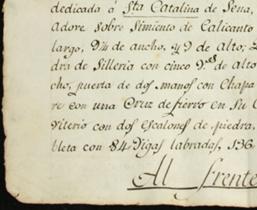 dedicada à Sta Catalina de Sena,
Adore sobre Simiento de Calicanto
largo, 9¼ de ancho, y 9 de Alto; 
dra de Silleria con cinco 9.as de alto
cho, puerta de dos manos con Chapa
re con una Cruz de fierro en su C
viterio con dos escalones de piedra,
bleta con 84 Vigas labradas, 136
Al frente